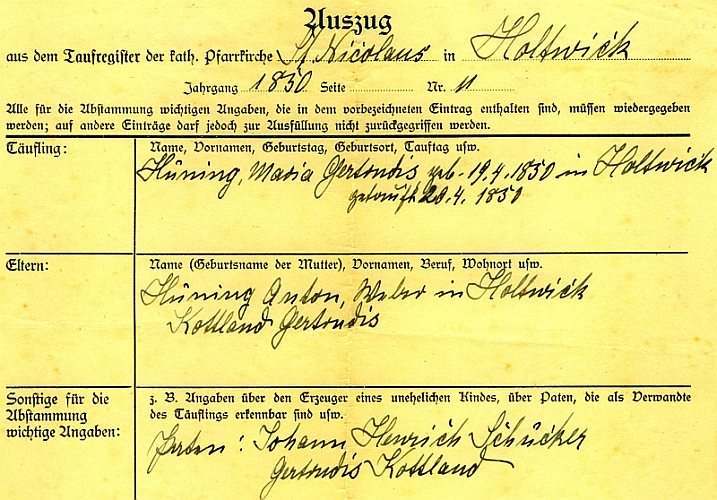 Auszug
aus dem Taufregister der kath. Pfarrkirche St Nicolaus in Holtwick
Jahrgang 1850 Seite Nr. 11
Alle für die Abstammung wichtigen Angaben, die in dem vorbezeichneten Eintrag enthalten sind, müssen wiedergegeben
werden; auf andere Einträge darf jedoch zur Ausfüllung nicht zurückgegriffen werden.
Täufling:
Name, Vornamen, Geburtstag, Geburtsort, Tauftag usw.
Hüning, Maria Gertrudis geb. 19.4.1850 in Holtwick
getauft 20.4. 1850
Eltern:
Name (Geburtsname der Mutter), Vornamen, Beruf, Wohnort usw.
Hüning Anton, Weber in Holtwick
Kottland Gertrudis
Sonstige für die
Abstammung
wichtige Angaben:
z. B. Angaben über den Erzeuger eines unehelichen Kindes, über Paten, die als Verwandte
des Täuflings erkennbar sind usw.
Paten: Johann Henrich Schücker
Gertrudis Kottland